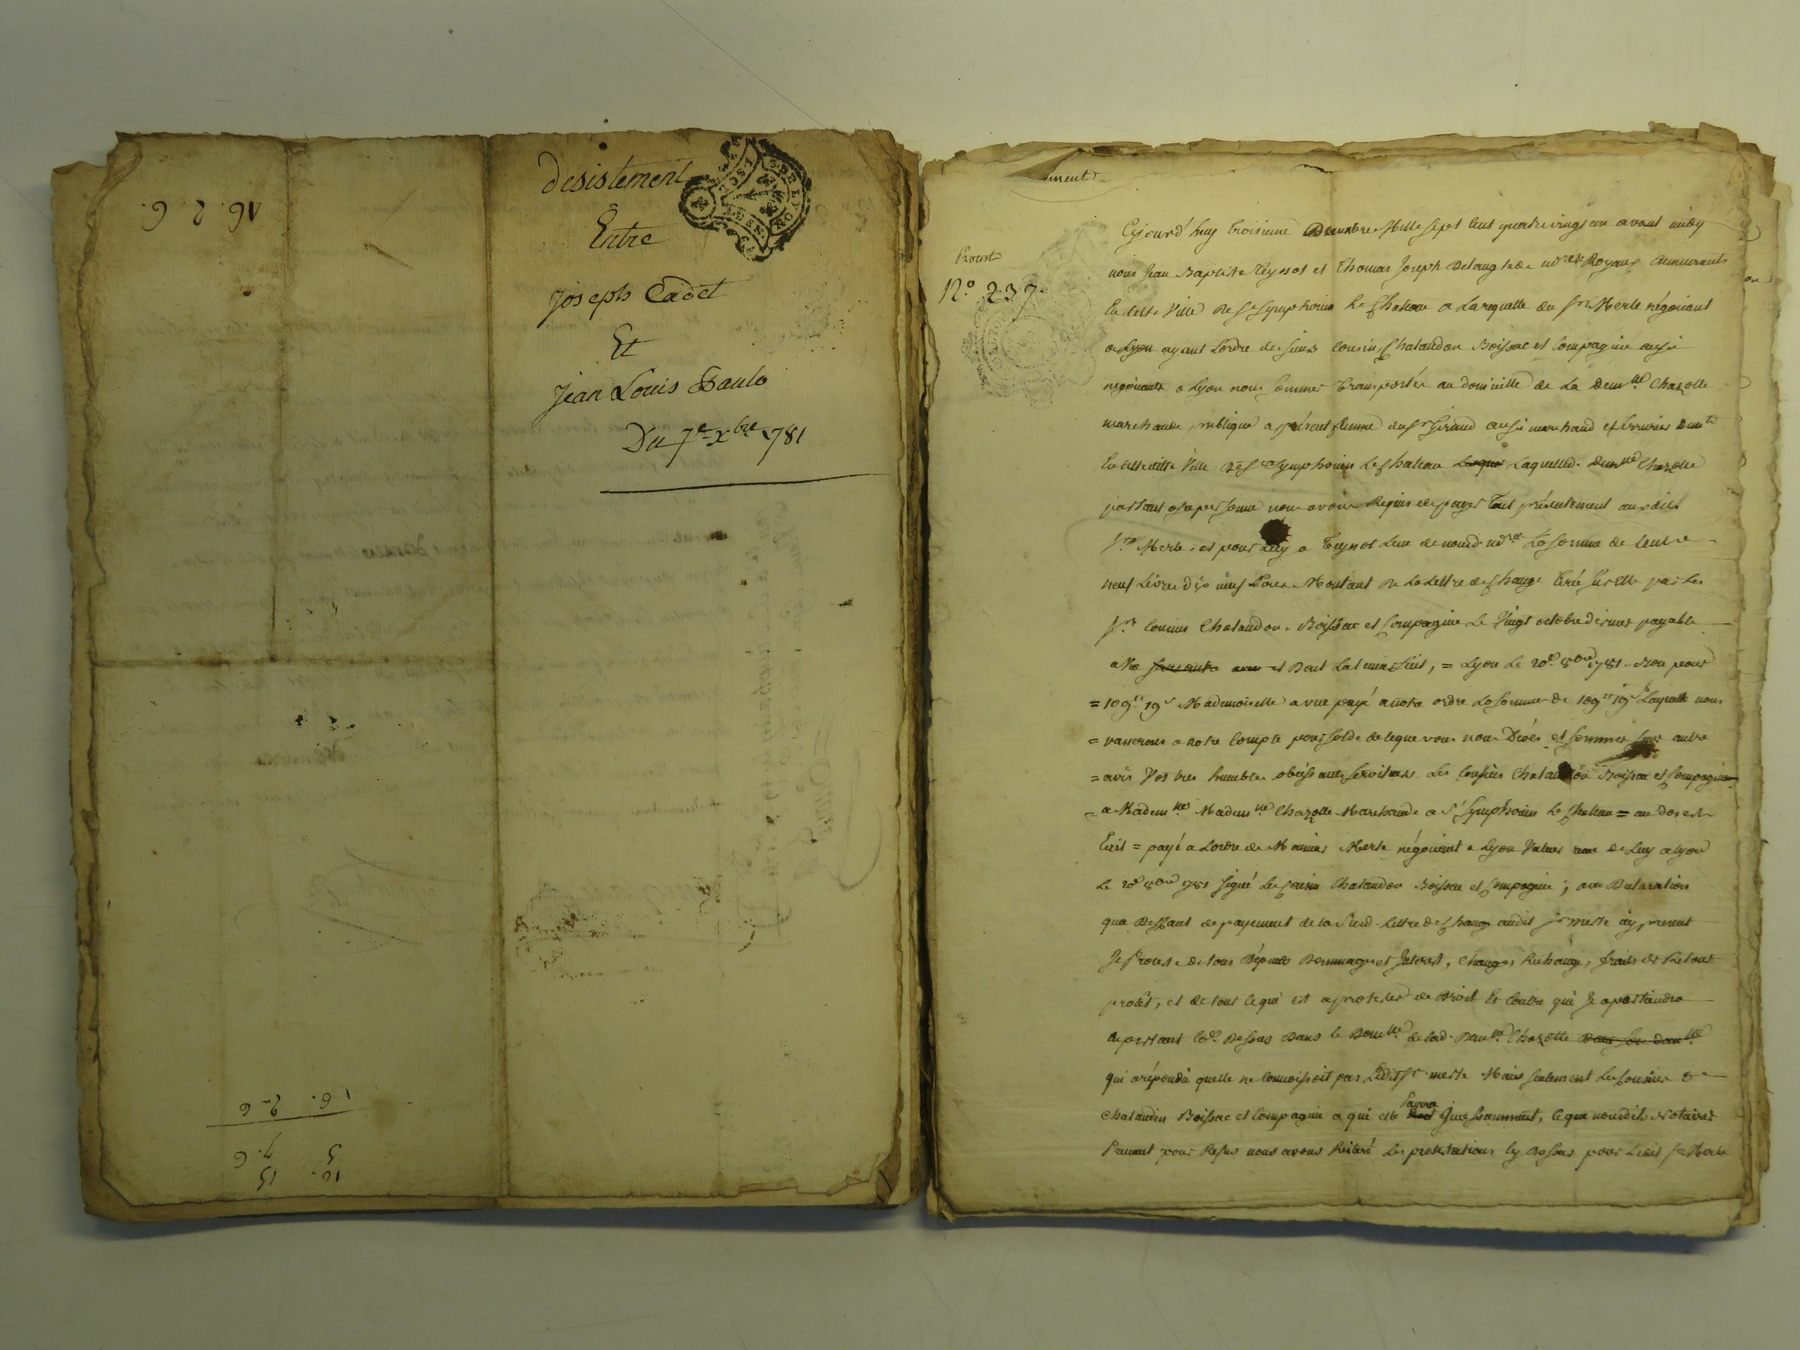 16. 2. 6.
desistement
Entre
Joseph Cadet
Et
Jean Louis Paulo
Du 7e xbre 1781
16. 2 6
10. 15
5
7. 6
Protet
No. 237.
Cejourd'huy troisieme Decembre Mille sept Cent quatrevingt un avant midy
nous Jean Baptiste Teyssot et Thomas Joseph Delanglade nores Royaux demeurants
En cette Ville de St Symphorien Le Chateau a La requette du Sr Merle négociant
a Lyon ayant Lordre des sieurs cousin Chalandon Boissac et Compagnie aussi
négociants a Lyon nous sommes transportés au domicille de La demlle Chazelle
marchande publique a présent femme du Sr Giraud aussi marchand
En cette Ville de St Symphorien Le Chateau Laquelle demlle Chazelle
parlant a sa personne nous avons Requis de payer tout présentement audit
Sr Merle et pour Luy a Teyssot L'un de nousd. nores La somme de
neuf Livres dix neuf sols Montant de La Lettre de change tirée sur elle par Les
Srs Cousins Chalandon Boissac et Compagnie Le Vingt octobre dernier payable
a Vue et Dont La teneur suit, = Lyon Le 20e 8bre 1781. Bon pour
= 109lt 19s Mademoiselle a vue payé a notre ordre La somme de 109lt 19s Laquelle nous
= passerons a notre Compte pour solde de ce que vous nous Devés et sommes sans autre
= avis Vos tres humbles obeissants serviteurs Les Cousins Chalandon Boissac et Compagnie
= a Mademlle Mademlle Chazelle Marchande a St Symphorien Le Chateau = au dos est
Ecrit = payé a Lordre de Monsieur Merle négociant a Lyon Valeur de Luy a Lyon
Le 20e 8bre 1781 signé Les Cousin Chalandon Boissac et Compagnie; avec Declaration
qua Deffaut de payement de la susd. Lettre de change audit Sr Merle
Je Proteste de tous Dépends Dommages et Interest, Changes Rechange, frais de Retour
protet, et de tout ce qui est a protester de Droit Et Contre qui Il apartiendra
En parlant Comme Dessus Dans le Domlle de lad. Demlle Chazelle
qui a répondu quelle ne Connoissoit pas Ledit Sr Merle Mais seulement Les Cousins
Chalandon Boissac et Compagnie a qui elle payera Incessamment, ce que nousdits Notaires
Prenant pour Refus nous avons Reiteré Les protestations Cy Dessus pour Ledit Sr Merle